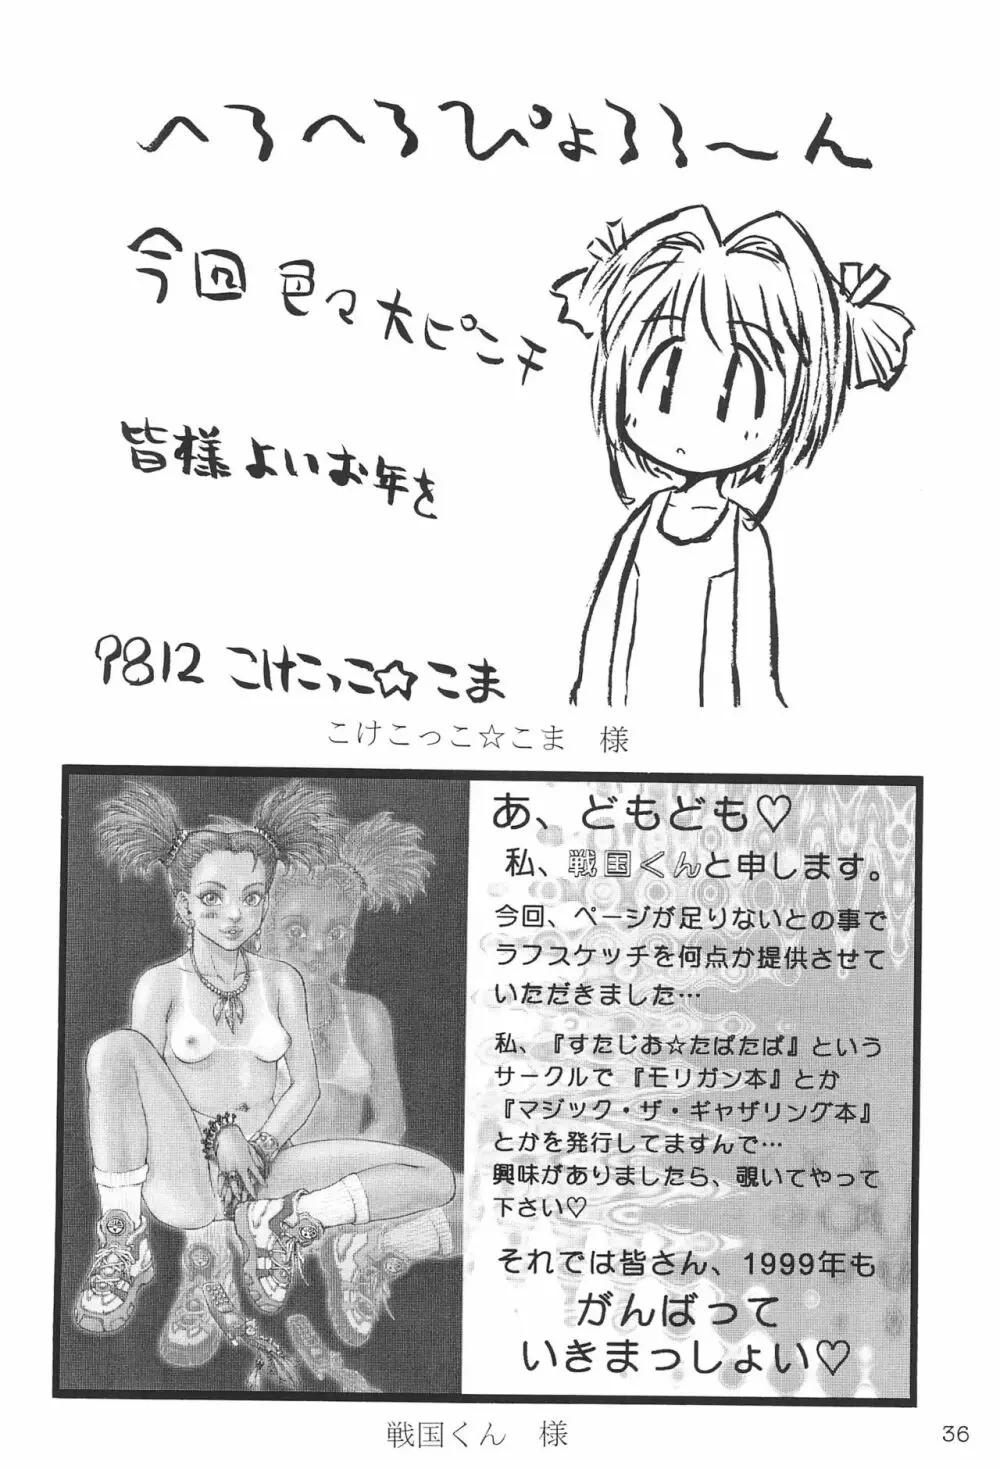 へろへろぴょろろ〜ん
今回色々大ピンチ
皆様よいお年を
9812 こけこっこ☆こま
こけこっこ☆こま 様
あ、どもども♡
私、戦国くんと申します。
今回、ページが足りないとの事で
ラフスケッチを何点か提供させて
いただきました…
私、『すたじお☆たぱたぱ』という
サークルで『モリガン本』とか
『マジック・ザ・ギャザリング本』
とかを発行してますんで…
興味がありましたら、覗いてやって
下さい♡
それでは皆さん、1999年も
がんばって
いきまっしょい♡
戦国くん 様
36